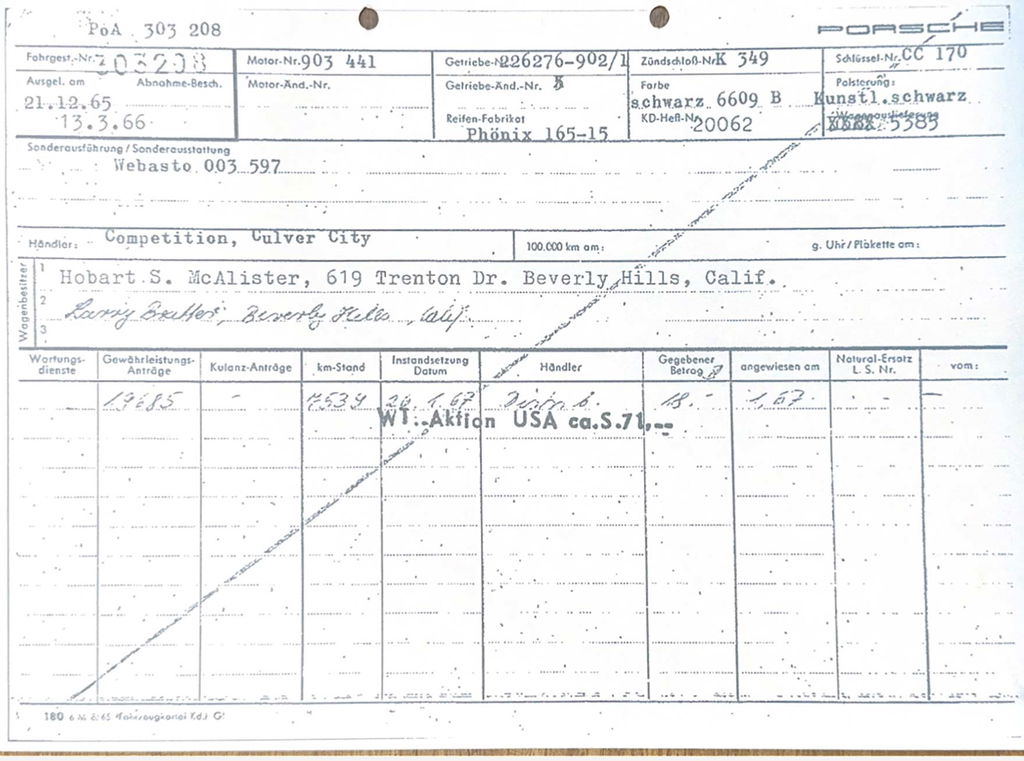 PoA 303 208
PORSCHE
Fahrgest.-Nr. 303208
Motor-Nr. 903 441
Getriebe-Nr. 226276-902/1
Zündschloß-Nr. K 349
Schlüssel-Nr. CC 170
Ausgel. am Abnahme-Besch.
Motor-Änd.-Nr.
Getriebe-Änd.-Nr. 5
Farbe
Polsterung:
21.12.65
schwarz 6609 B
Kunstl.schwarz
13.3.66
Reifen-Fabrikat
KD-Heft-Nr. 20062
Wagenauslieferung
Phönix 165-15
5385
Sonderausführung / Sonderausstattung
Webasto 003 597
Händler: Competition, Culver City
100.000 km am:
g. Uhr/Plakette am:
Wagenbesitzer
1 Hobart S. McAlister, 619 Trenton Dr. Beverly Hills, Calif.
2 Larry Beverly Hills, Calif.
3
Wartungs-dienste
Gewährleistungs-Anträge
Kulanz-Anträge
km-Stand
Instandsetzung Datum
Händler
Gegebener Betrag
angewiesen am
Natural-Ersatz L. S. Nr.
vom:
19685 - 7539 1.67 18.- 1.67 - - -
WT.-Aktion USA ca.S.71,--
180